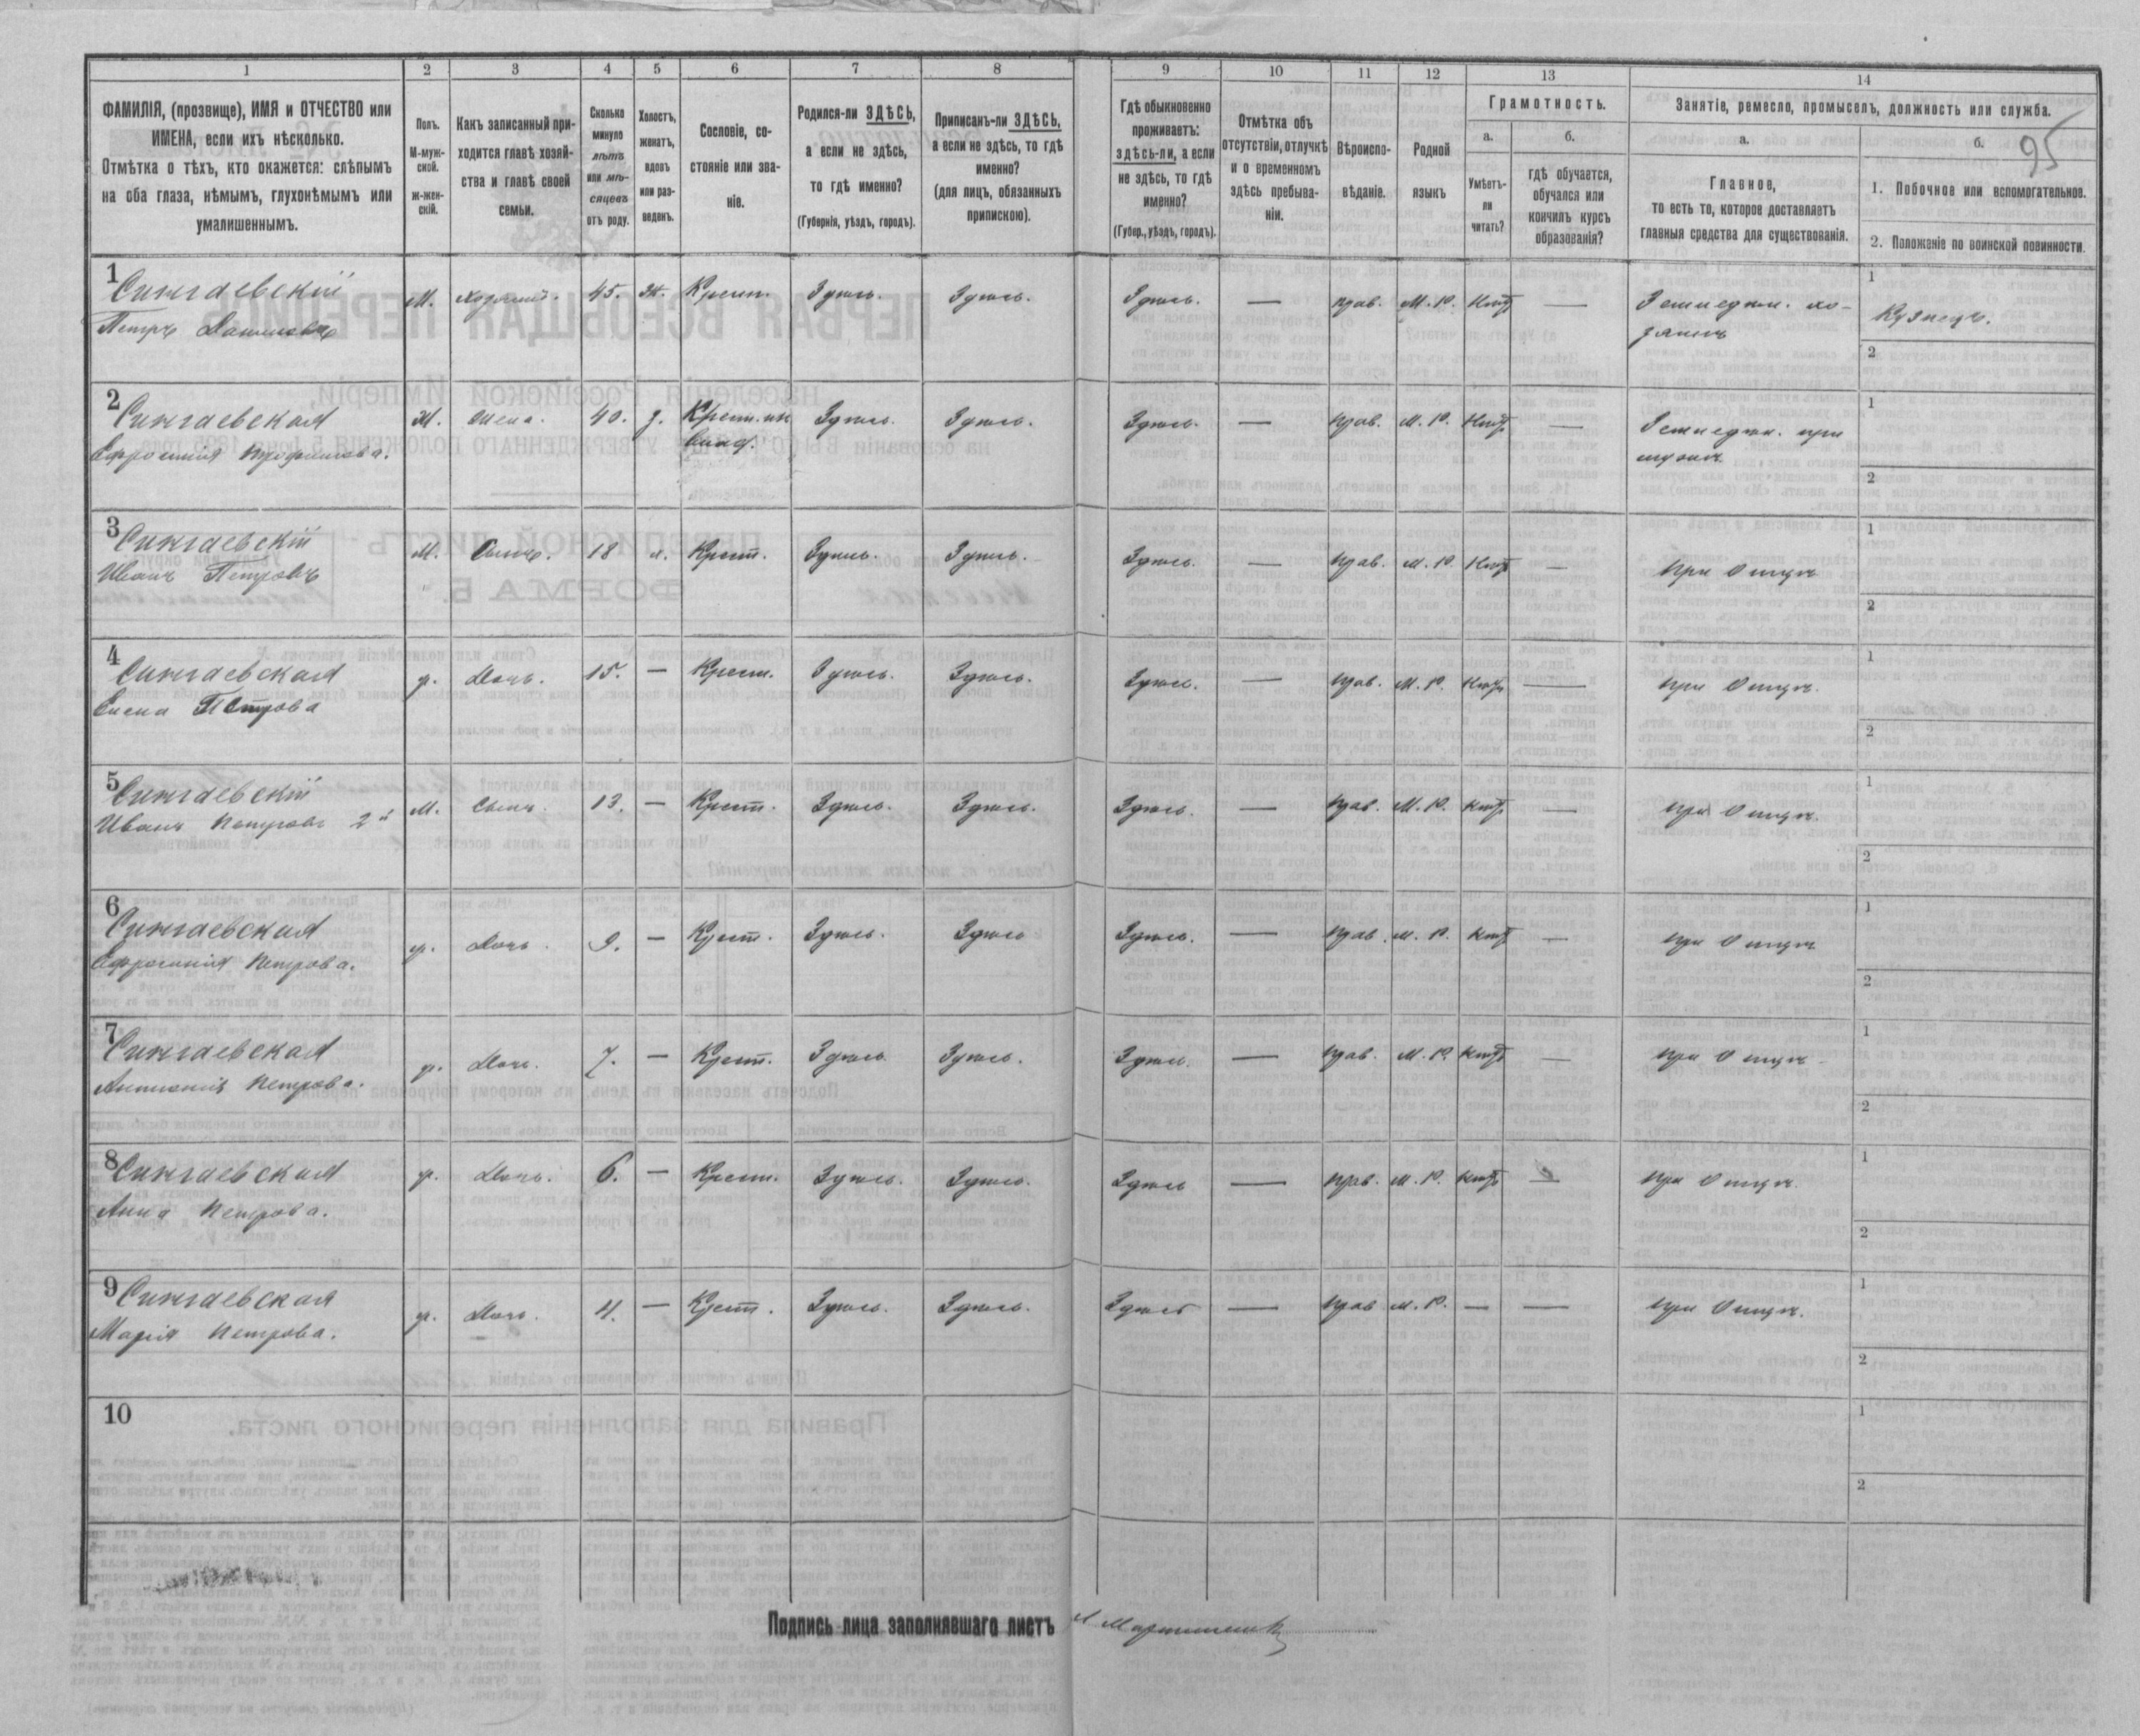 1 2 3 4 5 6 7 8 9 10 11 12 13 14
ФАМИЛІЯ, (прозвище), ИМЯ и ОТЧЕСТВО или
ИМЕНА, если ихъ нѣсколько.
Отмѣтка о тѣхъ, кто окажется: слѣпымъ
на оба глаза, нѣмымъ, глухонѣмымъ или
умалишеннымъ.
Полъ.
М-муж-
ской.
ж-жен-
скій.
Какъ записанный при-
ходится главѣ хозяй-
ства и главѣ своей
семьи.
Сколько
минуло
лѣтъ
или мѣ-
сяцевъ
отъ роду.
Холостъ,
женатъ,
вдовъ
или раз-
веденъ.
Сословіе, со-
стояніе или зва-
ніе.
Родился-ли ЗДѢСЬ,
а если не здѣсь,
то гдѣ именно?
(Губернія, уѣздъ, городъ).
Приписанъ-ли ЗДѢСЬ,
а если не здѣсь, то гдѣ
именно?
(для лицъ, обязанныхъ
припискою).
Гдѣ обыкновенно
проживаетъ:
здѣсь-ли, а если
не здѣсь, то гдѣ
именно?
(Губер., уѣздъ, городъ).
Отмѣтка объ
отсутствіи, отлучкѣ
и о временномъ
здѣсь пребыва-
ніи.
Вѣроиспо-
вѣданіе.
Родной
языкъ
Грамотность.
а.
Умѣетъ-
ли
читать?
б.
гдѣ обучается,
обучался или
кончилъ курсъ
образованія?
Занятіе, ремесло, промыселъ, должность или служба.
а.
Главное,
то есть то, которое доставляетъ
главныя средства для существованія.
б.
95
1. Побочное или вспомогательное.
2. Положеніе по воинской повинности.
1 Сингаевскій М. Хозяинъ. 45. Ж. Крест. Здѣсь. Здѣсь. Здѣсь. — прав. М. Р. Нѣтъ — Земледѣл. хо- 1
Петръ зяинъ Кузнецъ.
2
2 Сингаевская Ж. Жена. 40. з. Крест. Здѣсь. Здѣсь. Здѣсь. — прав. М. Р. Нѣтъ — Земледѣл. при 1
Ефросинія мужѣ
2
3 Сингаевскій М. Сынъ. 18 х. Крест. Здѣсь. Здѣсь. Здѣсь. — прав. М. Р. Нѣтъ — при Отцѣ 1
Иванъ Петровъ 2
4 Сингаевская Дочь. 15. — Крест. Здѣсь. Здѣсь. Здѣсь. — прав. М. Р. Нѣтъ — при Отцѣ. 1
Елена Петрова 2
5 Сингаевскій М. Сынъ. 13. — Крест. Здѣсь. Здѣсь. Здѣсь. — прав. М. Р. Нѣтъ — при Отцѣ. 1
Иванъ Петровъ 2й 2
6 Сингаевская Дочь. 9. — Крест. Здѣсь. Здѣсь Здѣсь. — прав. М. Р. Нѣтъ — при Отцѣ 1
Ефросинія Петрова. 2
7 Сингаевская Дочь. 7. — Крест. Здѣсь Здѣсь. Здѣсь. — прав. М. Р. Нѣтъ — при Отцѣ 1
Петрова. 2
8 Сингаевская Дочь. 6. — Крест. Здѣсь. Здѣсь. Здѣсь — прав. М. Р. Нѣтъ — при Отцѣ. 1
Анна Петрова. 2
9 Сингаевская Дочь. 4. — Крест. Здѣсь. Здѣсь. Здѣсь — прав М. Р. — — при Отцѣ. 1
Марія Петрова. 2
10 1
2
Подпись лица заполнявшаго листъ